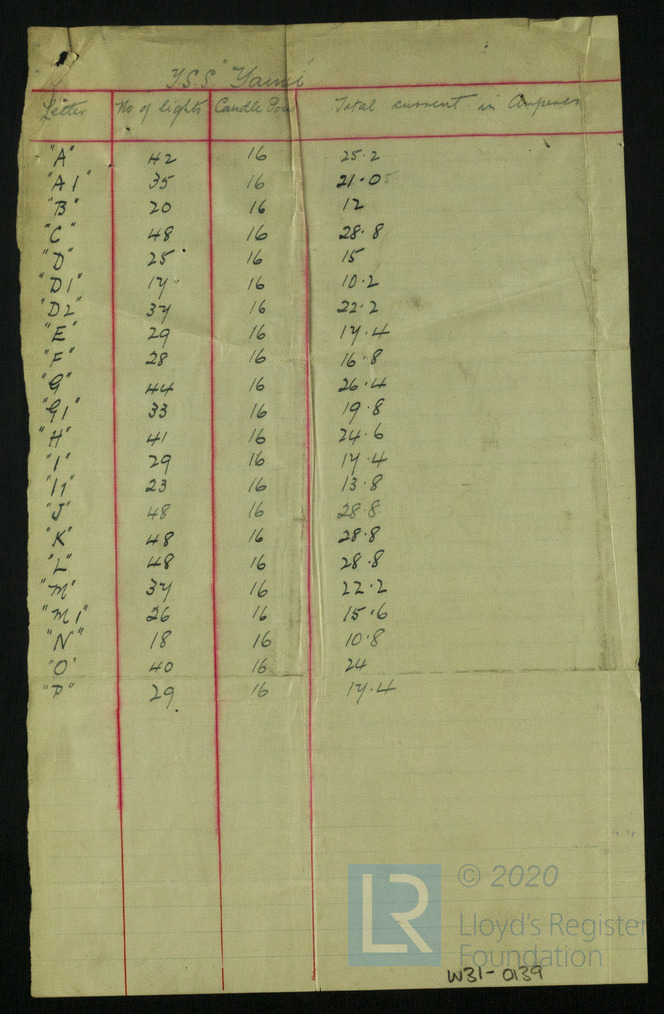 T.S.S "Yaroi"
Letter No of lights Candle Pow Total current in Amperes
"A" 42 16 25.2
"A1" 35 16 21.05
"B" 20 16 12
"C" 48 16 28.8
"D" 25 16 15
"D1" 17 16 10.2
"D2" 37 16 22.2
"E" 29 16 17.4
"F" 28 16 16.8
"G" 44 16 26.4
"G1" 33 16 19.8
"H" 41 16 24.6
"I" 29 16 17.4
"I1" 23 16 13.8
"J" 48 16 28.8
"K" 48 16 28.8
"L" 48 16 28.8
"M" 37 16 22.2
"M1" 26 16 15.6
"N" 18 16 10.8
"O" 40 16 24
"P" 29 16 17.4
LR
© 2020
Lloyd's Register
Foundation
W31-0139